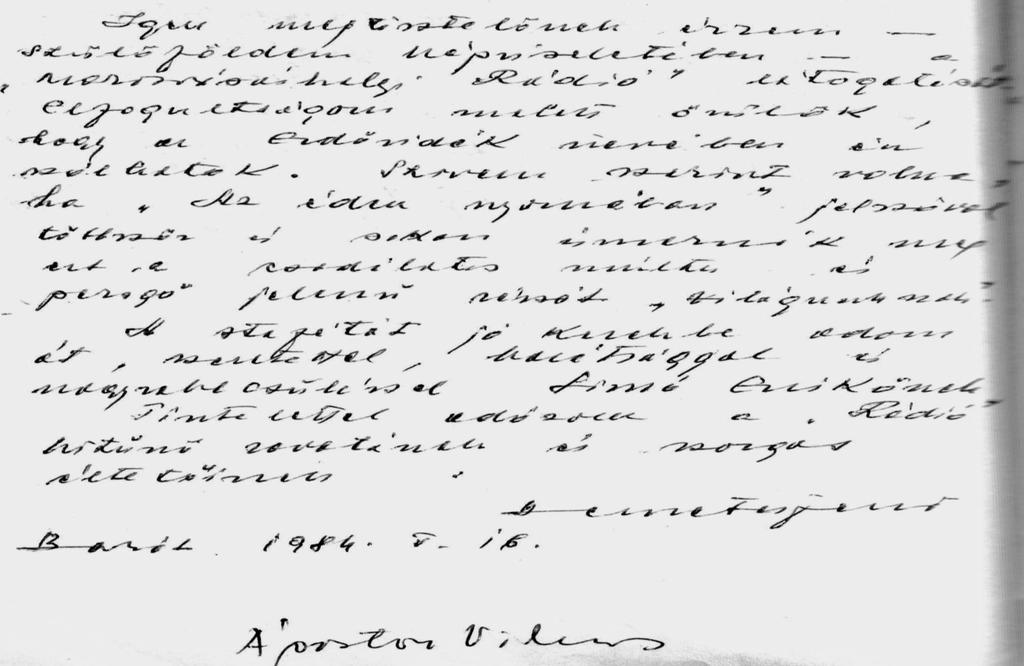 Igen megtisztelőnek érzem —
szülőföldem népviseletében — a
„Marosvásárhelyi Rádió" látogatását
Elfogultságom mellett örülök,
hogy az Erdővidék nevében én
szólhatok. Szívem szerint volna,
ha „Az édra nyomában" jelszóval
többször és sokan ismernék meg
ezt a csodálatos múltu és
pezsgő jelenű részét „világunknak".
A stafétát jó kezekbe adom
át, szeretettel, barátsággal és
nagyrabecsüléssel Simó Enikőnek
Tisztelettel adózom a „Rádió"
kitűnő rovatának és szorgos
éltetőinek.
Demeter Jenő
Barót 1984. V. 16.
Ápostor Vilmos